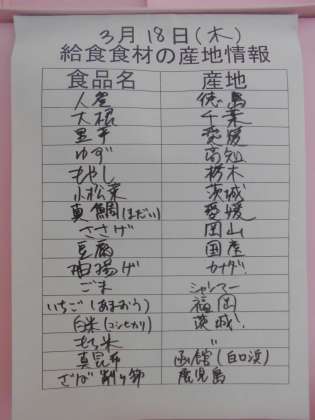 3月18日(木)
給食食材の産地情報
食品名 産地
人参 徳島
大根 千葉
里芋 愛媛
ゆず 高知
もやし 栃木
小松菜 茨城
真鯛(まだい) 愛媛
ささげ 岡山
豆腐 国産
油揚げ カナダ
ごま ミャンマー
いちご(あまおう) 福岡
白米(コシヒカリ) 茨城
もち米 〃
真昆布 函館(白口浜)
さば削り節 鹿児島